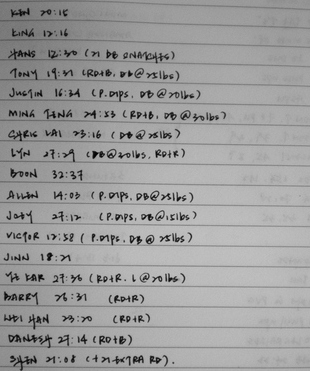 KEN 20:15
KING 12:16
HANS 12:30 (21 DB SNATCHES)
TONY 19:31 (RD+B, DB@25lbs)
JUSTIN 16:34 (P.DIPS, DB@20lbs)
MING FENG 24:53 (RD+B, DB@30lbs)
CHRIS LAI 23:16 (DB@25lbs)
LYN 27:29 (DB@20lbs, RD+R)
BOON 32:37
ALLEN 14:03 (P.DIPS, DB@25lbs)
JOEY 27:12 (P.DIPS, DB@15lbs)
VICTOR 12:58 (P.DIPS, DB@25lbs)
JINN 18:21
YE KAR 27:36 (RD+R, L@20lbs)
BARRY 26:31 (RD+R)
WEI HAN 23:20 (RD+R)
DANESH 27:14 (RD+B)
SHEN 21:08 (+21 EXTRA RD).